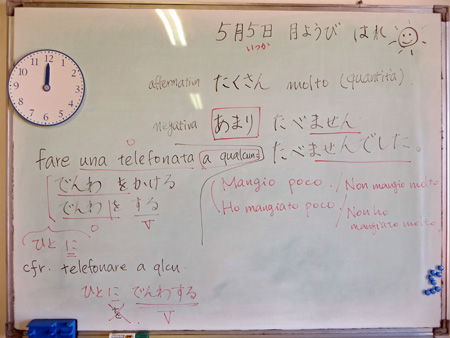 5月5日 月ようび はれ
いつか
affermativa たくさん molto (quantità)
negativa あまり たべません
fare una telefonata a qualcuno たべませんでした。
でんわ を かける
でんわ を する
O V
ひと に
Mangio poco / Non mangio molto
Ho mangiato poco / Non ho mangiato molto
cfr. telefonare a qlcu
ひと に でんわする
を V
12 1 2 3 4 5 6 7 8 9 10 11